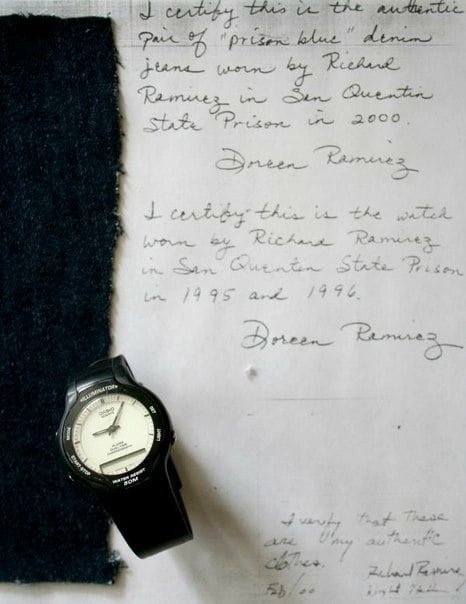 I certify this is the authentic
pair of "prison blue" denim
jeans worn by Richard
Ramirez in San Quentin
State Prison in 2000.
Doreen Ramirez
I certify this is the watch
worn by Richard Ramirez
in San Quentin State Prison
in 1995 and 1996.
Doreen Ramirez
ILLUMINATOR
MODE
SET
CASIO
LIGHT
START STOP
WATER RESIST
50M
I verify that these
are my authentic
clothes.
Richard Ramirez
Feb/00